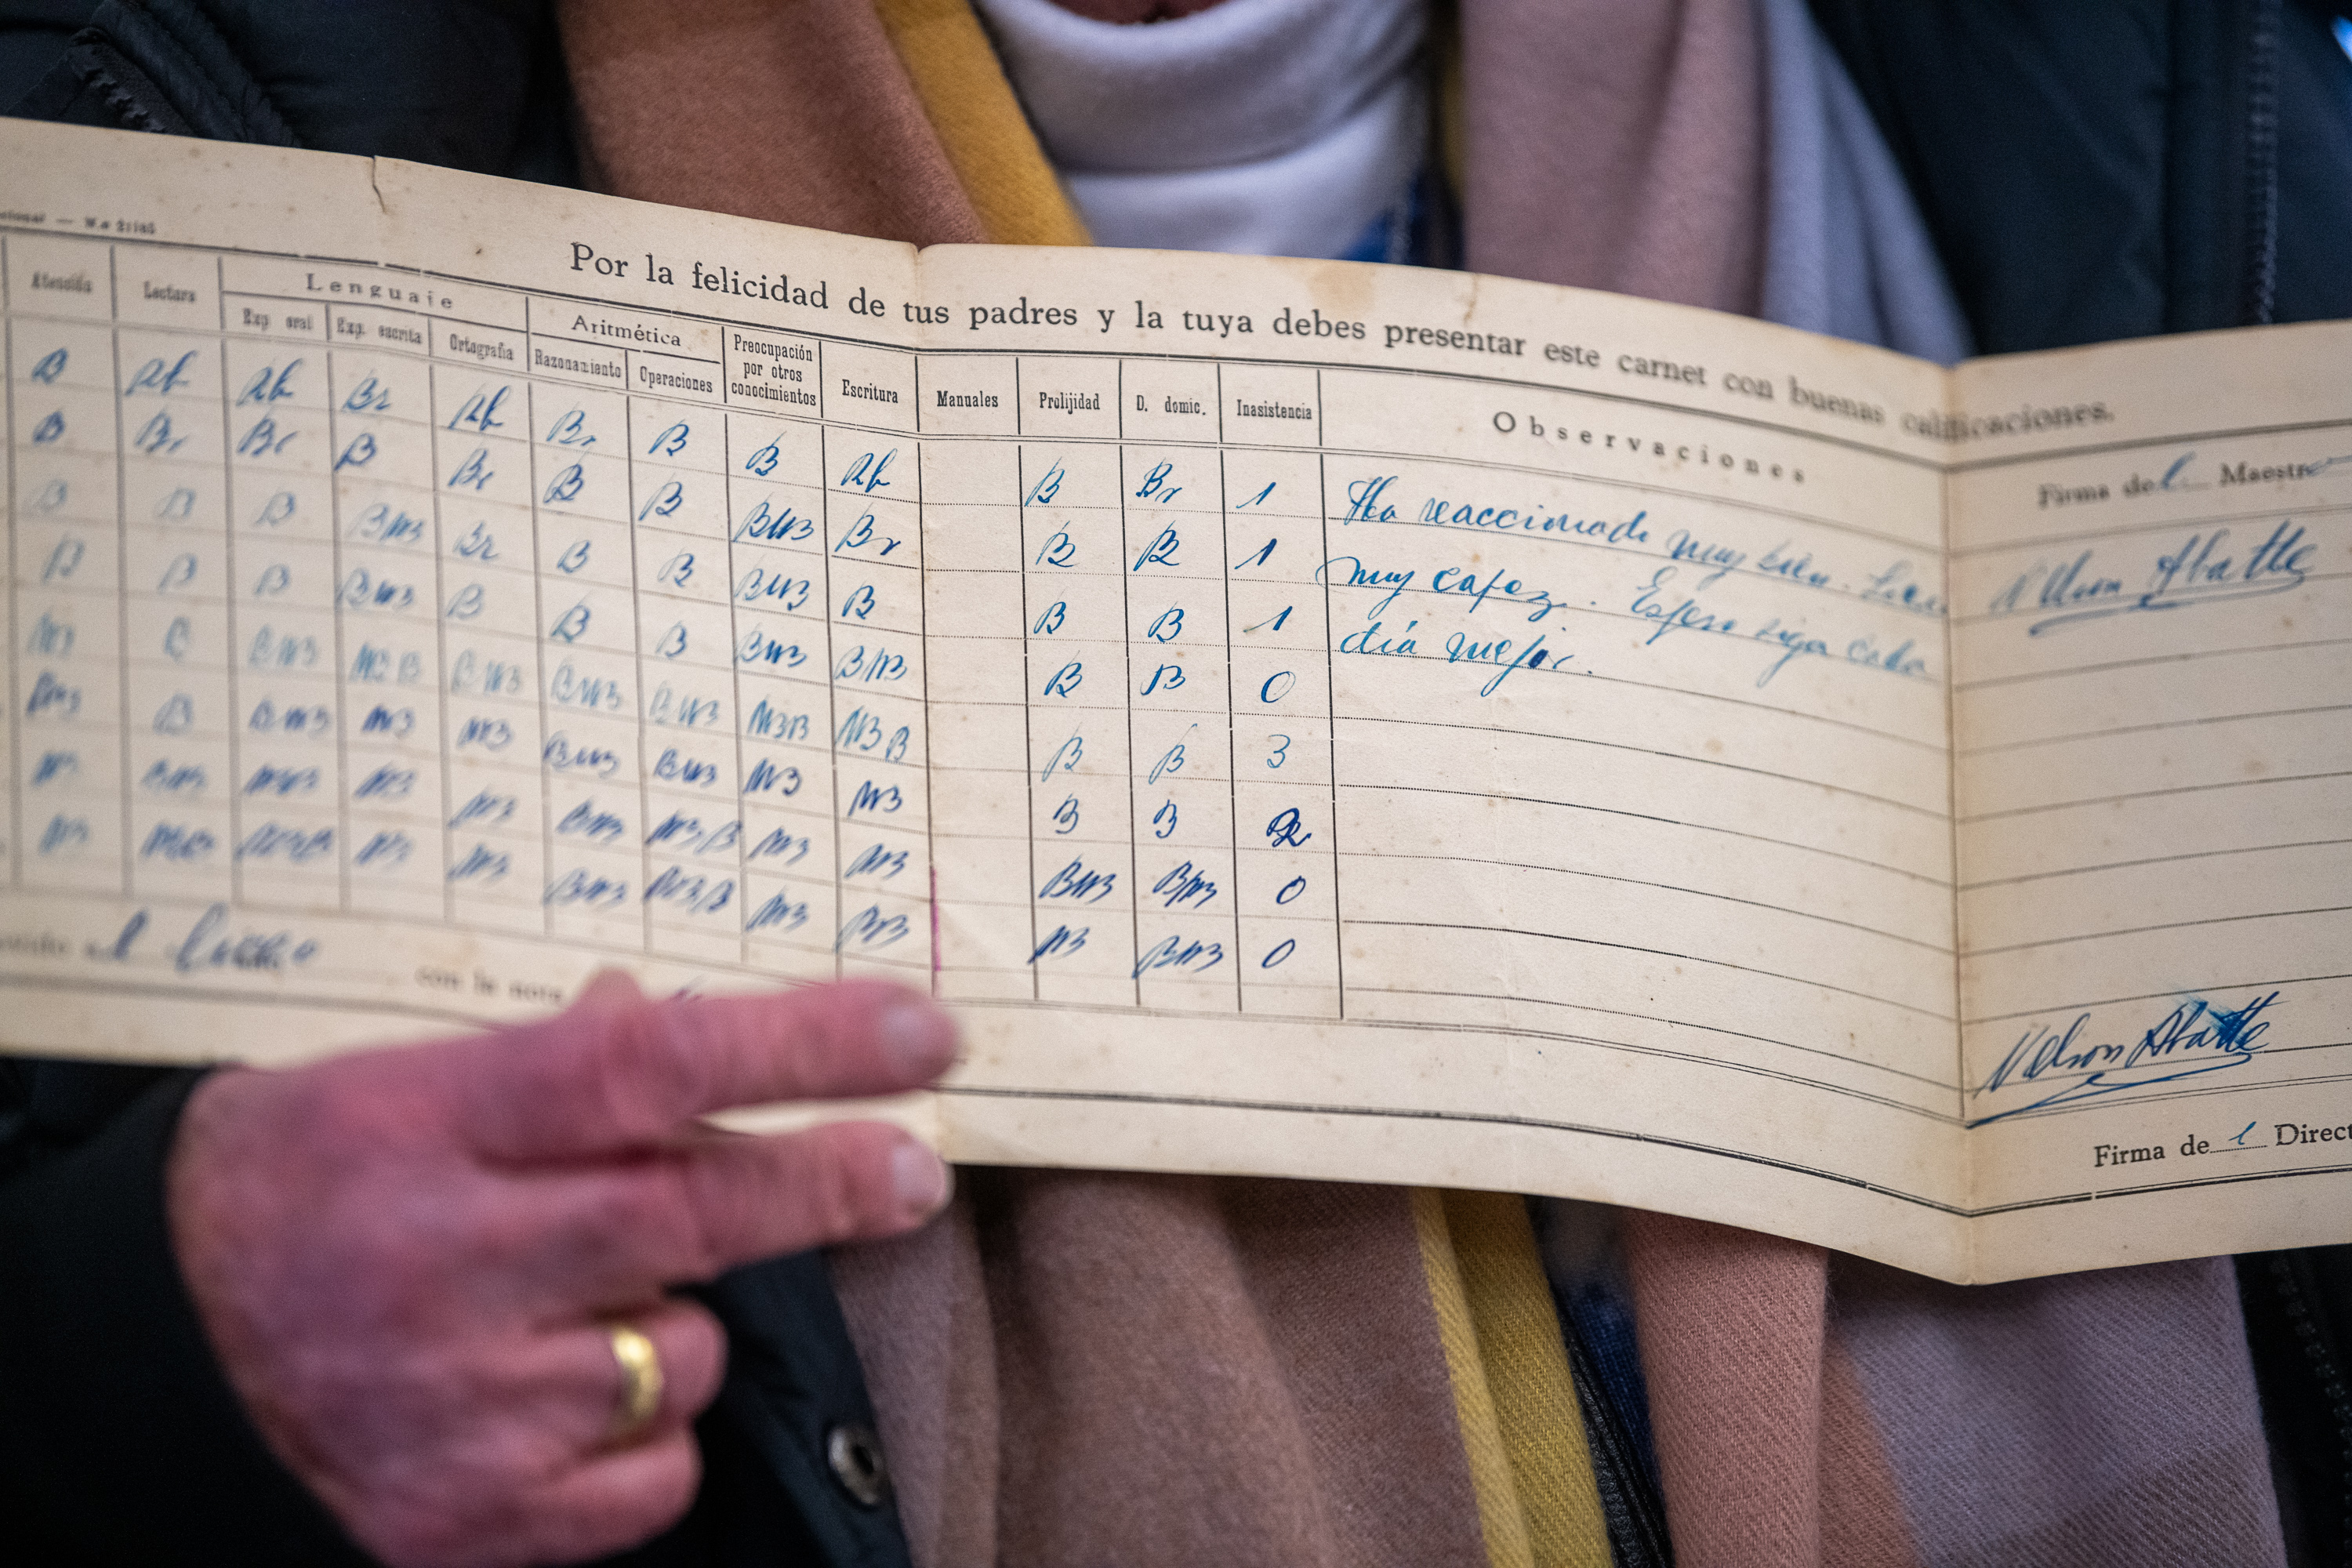 N.o 21185
Por la felicidad de tus padres y la tuya debes presentar este carnet con buenas calificaciones.
Atención Lectura Lenguaje Aritmética Preocupación por otros conocimientos Escritura Manuales Prolijidad D. domic. Inasistencia Observaciones Firma del Maestro
Exp. oral Exp. escrita Ortografía Razonamiento Operaciones
B Rb Rb Br Rb Br B B Rb B Br 1 Ha reaccionado muy bien.
B Br Br B Br B B BMB Br B B 1 muy capaz. Espero siga cada
B B B BMB Br B B BMB B B B 1 día mejor.
B B B BMB B B B BMB BMB B B 0
B BMB MBB BMB BMB BMB MBB MBB B B 3
BMB B BMB MB MB BMB BMB MB MB B B 2
MB BMB MB MB BMB MB/B MB MB BMB BMB 0
MB MB MB BMB MB/B MB MB BMB 0
Nelson Abatte
Nelson Abatte
con la nota
Firma del Direct